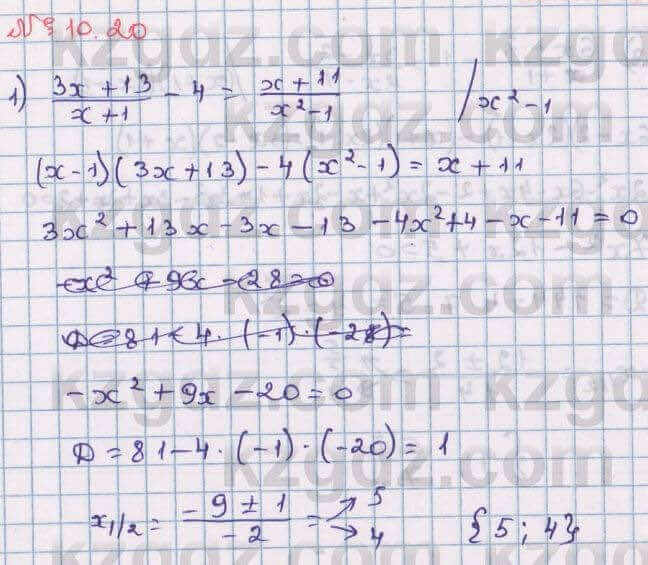 № 10.20
1) (3x + 13)/(x + 1) - 4 = (x + 11)/(x² - 1) / x² - 1
(x - 1)(3x + 13) - 4(x² - 1) = x + 11
3x² + 13x - 3x - 13 - 4x² + 4 - x - 11 = 0
-x² + 9x - 28 = 0
D = 81 - 4 · (-1) · (-28) =
-x² + 9x - 20 = 0
D = 81 - 4 · (-1) · (-20) = 1
x₁/₂ = (-9 ± 1)/(-2) = ↗ 5 ↘ 4 {5; 4}
kzgdz.com